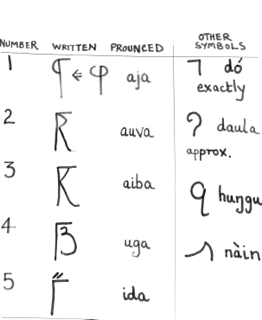 NUMBER WRITTEN PROUNCED OTHER SYMBOLS
1 aja dó exactly
2 auva daula approx.
3 aiba huŋgu
4 uga nàin
5 ida